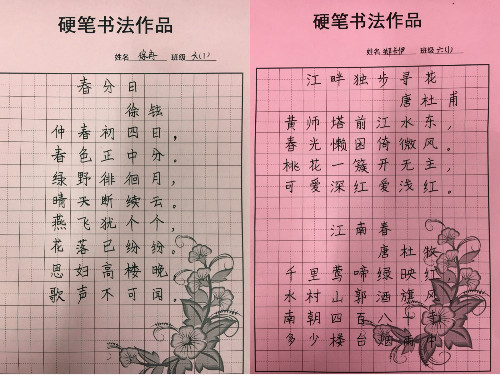 硬笔书法作品
姓名 班级 六(1)
春分日
徐铉
仲春初四日，
春色正中分。
绿野徘徊月，
晴天断续云。
燕飞犹个个，
花落已纷纷。
思妇高楼晚，
歌声不可闻。
硬笔书法作品
姓名 班级 六(1)
江畔独步寻花
唐杜甫
黄师塔前江水东，
春光懒困倚微风。
桃花一簇开无主，
可爱深红爱浅红。
江南春
唐杜牧
千里莺啼绿映红
水村山郭酒旗风
南朝四百八十寺
多少楼台烟雨中